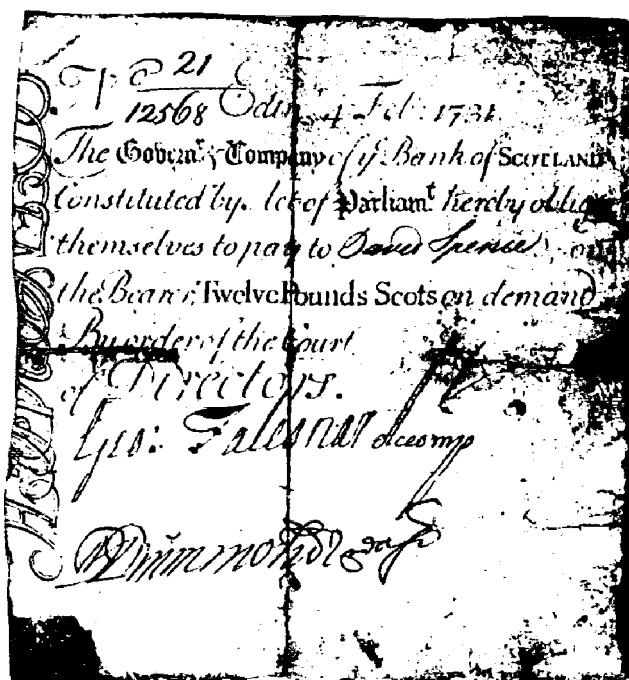 N° 21
12568 Edinr. 4 Febr. 1731
The Governr. & Company of ye Bank of SCOTLAND
Constituted by Act of Parliamt. hereby oblige
themselves to pay to David Spence or
the Bearer, Twelve Pounds Scots on demand
By order of the Court
of Directors.
Geo: Falconar accomp
Drummond